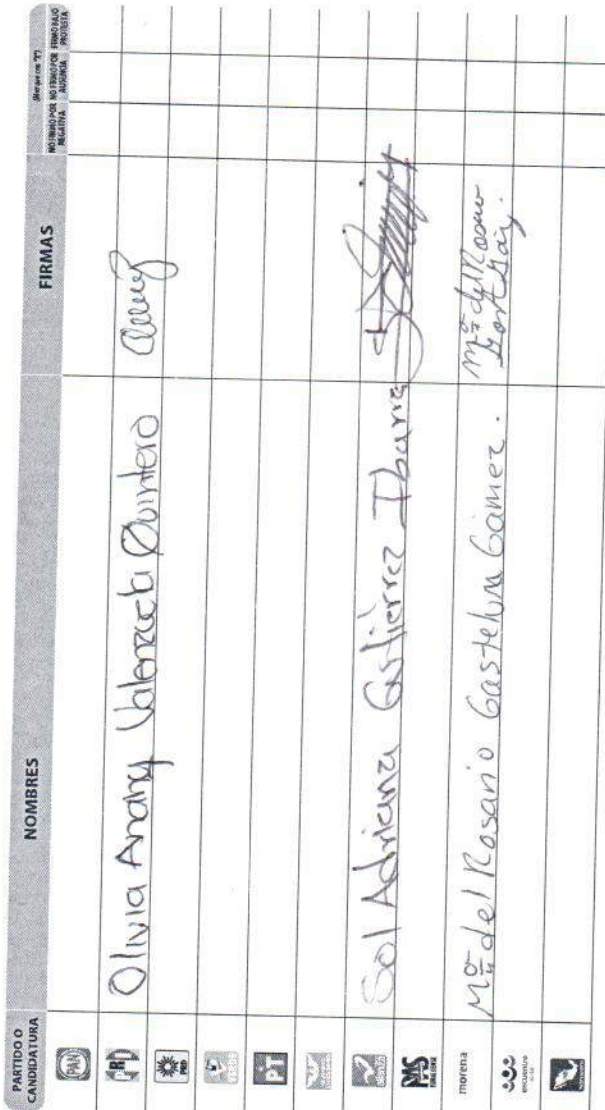 PARTIDO O CANDIDATURA
NOMBRES
FIRMAS
(Marque con "X")
NO FIRMÓ POR NEGATIVA
NO FIRMÓ POR AUSENCIA
FIRMÓ BAJO PROTESTA
PAN
PRI
Olivia Anahy Valenzuela Quintero
PRD
VERDE
PT
Sol Adriana Gutiérrez Ibarra
PAS
SINALOENSE
morena
Mª del Rosario Gastelum Gámez.
Mª del Rosario
encuentro